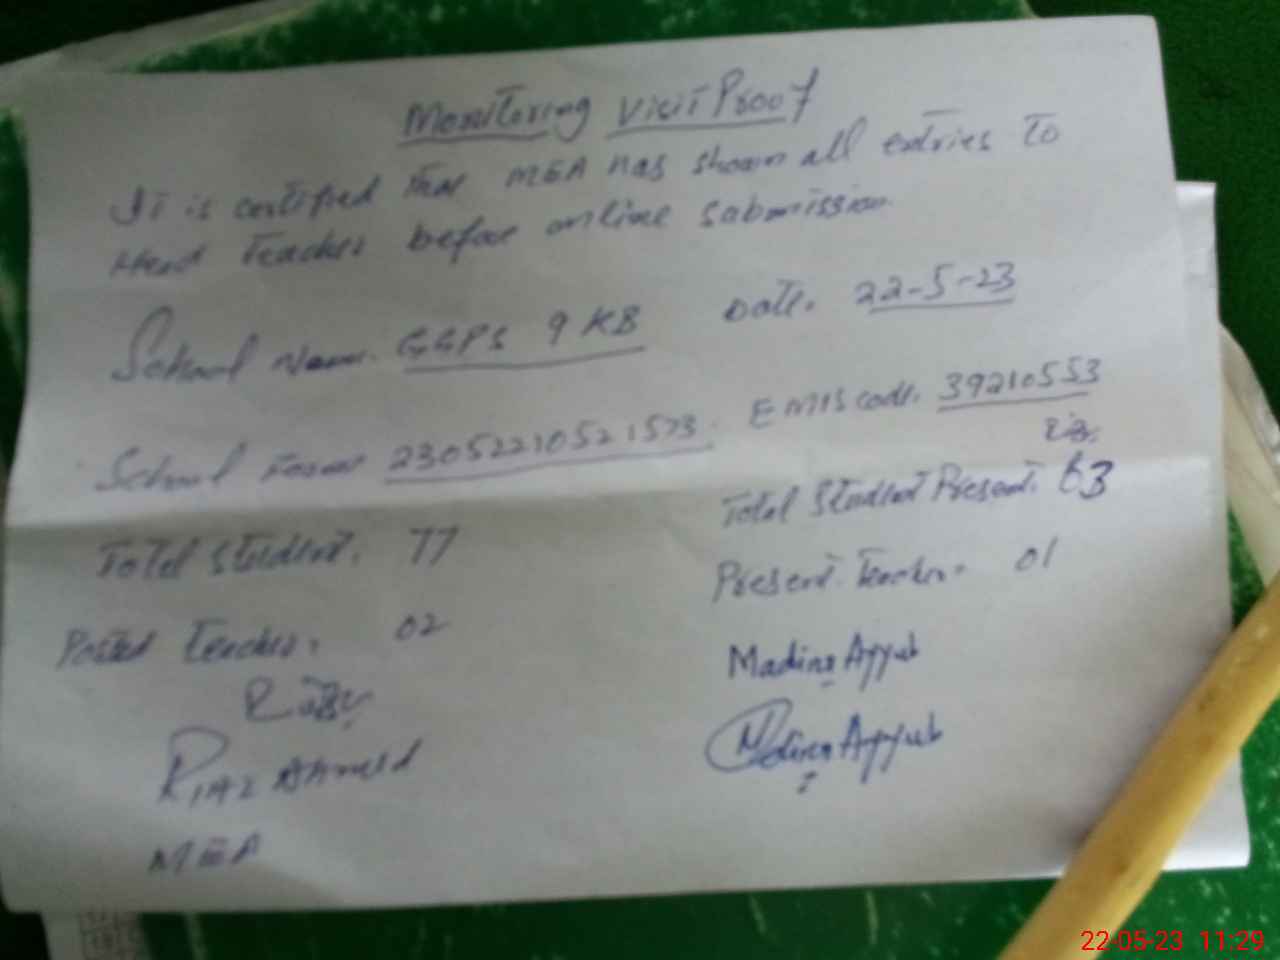 Monitoring Visit Proof
It is certified that MEA has shown all entries to
Head Teacher before online submission.
School Name. GGPS 9 KB Date. 22-5-23
School Form 23052210521573. EMIS code. 39210553
Total Student. 77 Total Student Present. 63
Posted Teacher. 02 Present Teacher. 01
Madina Ayyub
Riaz Ahmed Madina Ayyub
MEA
22-05-23 11:29